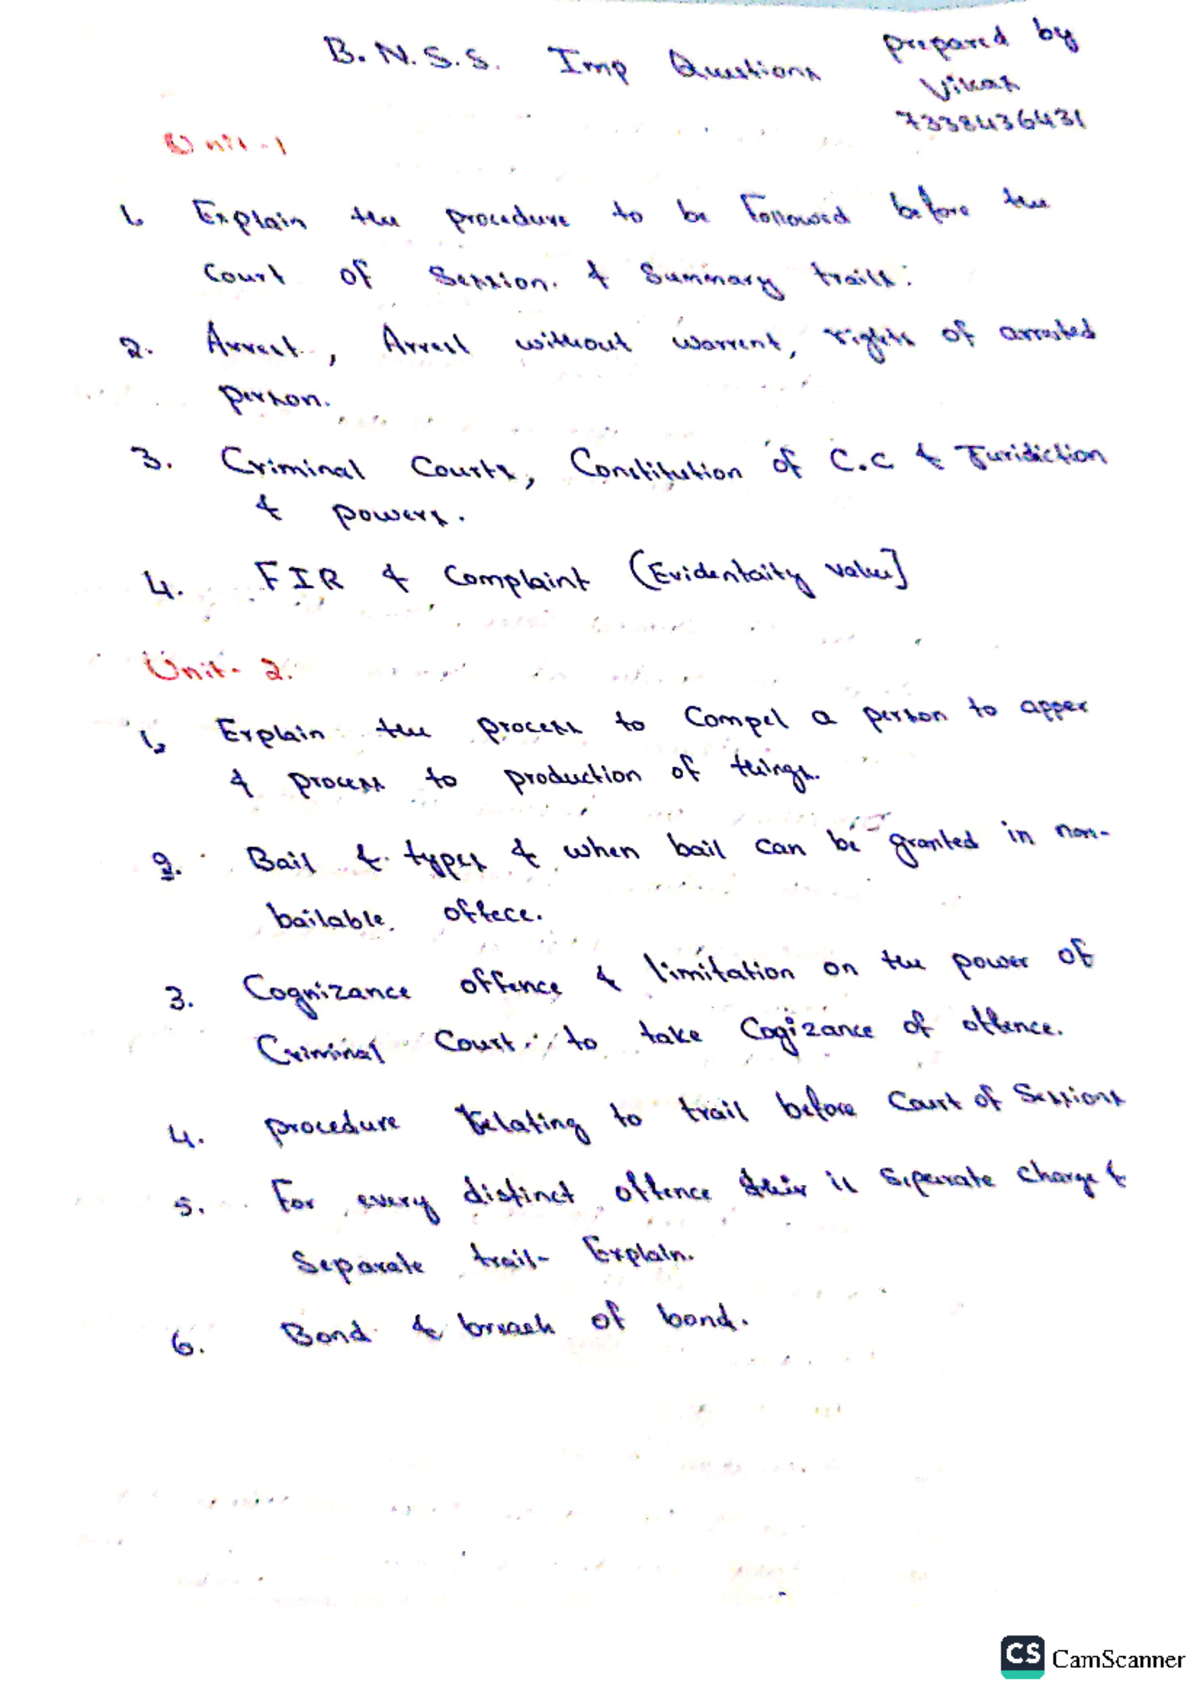 B.N.S.S. Imp Questions
prepared by
Vikas
7338436431
Unit-1
1. Explain the procedure to be followed before the
Court of Session. & Summary trails.
2. Arrest, Arrest without warrent, rights of arrested
person.
3. Criminal Courts, Constitution of C.C & Juridiction
& powers.
4. FIR & Complaint (Evidentaity value]
Unit- 2.
1. Explain the process to Compel a person to apper
& process to production of things.
2. Bail & types & when bail can be granted in non-
bailable offece.
3. Cognizance offence & limitation on the power of
Criminal Court to take Cogizance of offence.
4. procedure relating to trail before Court of Sessions
5. For every distinct offence is Seperate Charge &
Separate trail- Explain.
6. Bond & breach of bond.
CS CamScanner